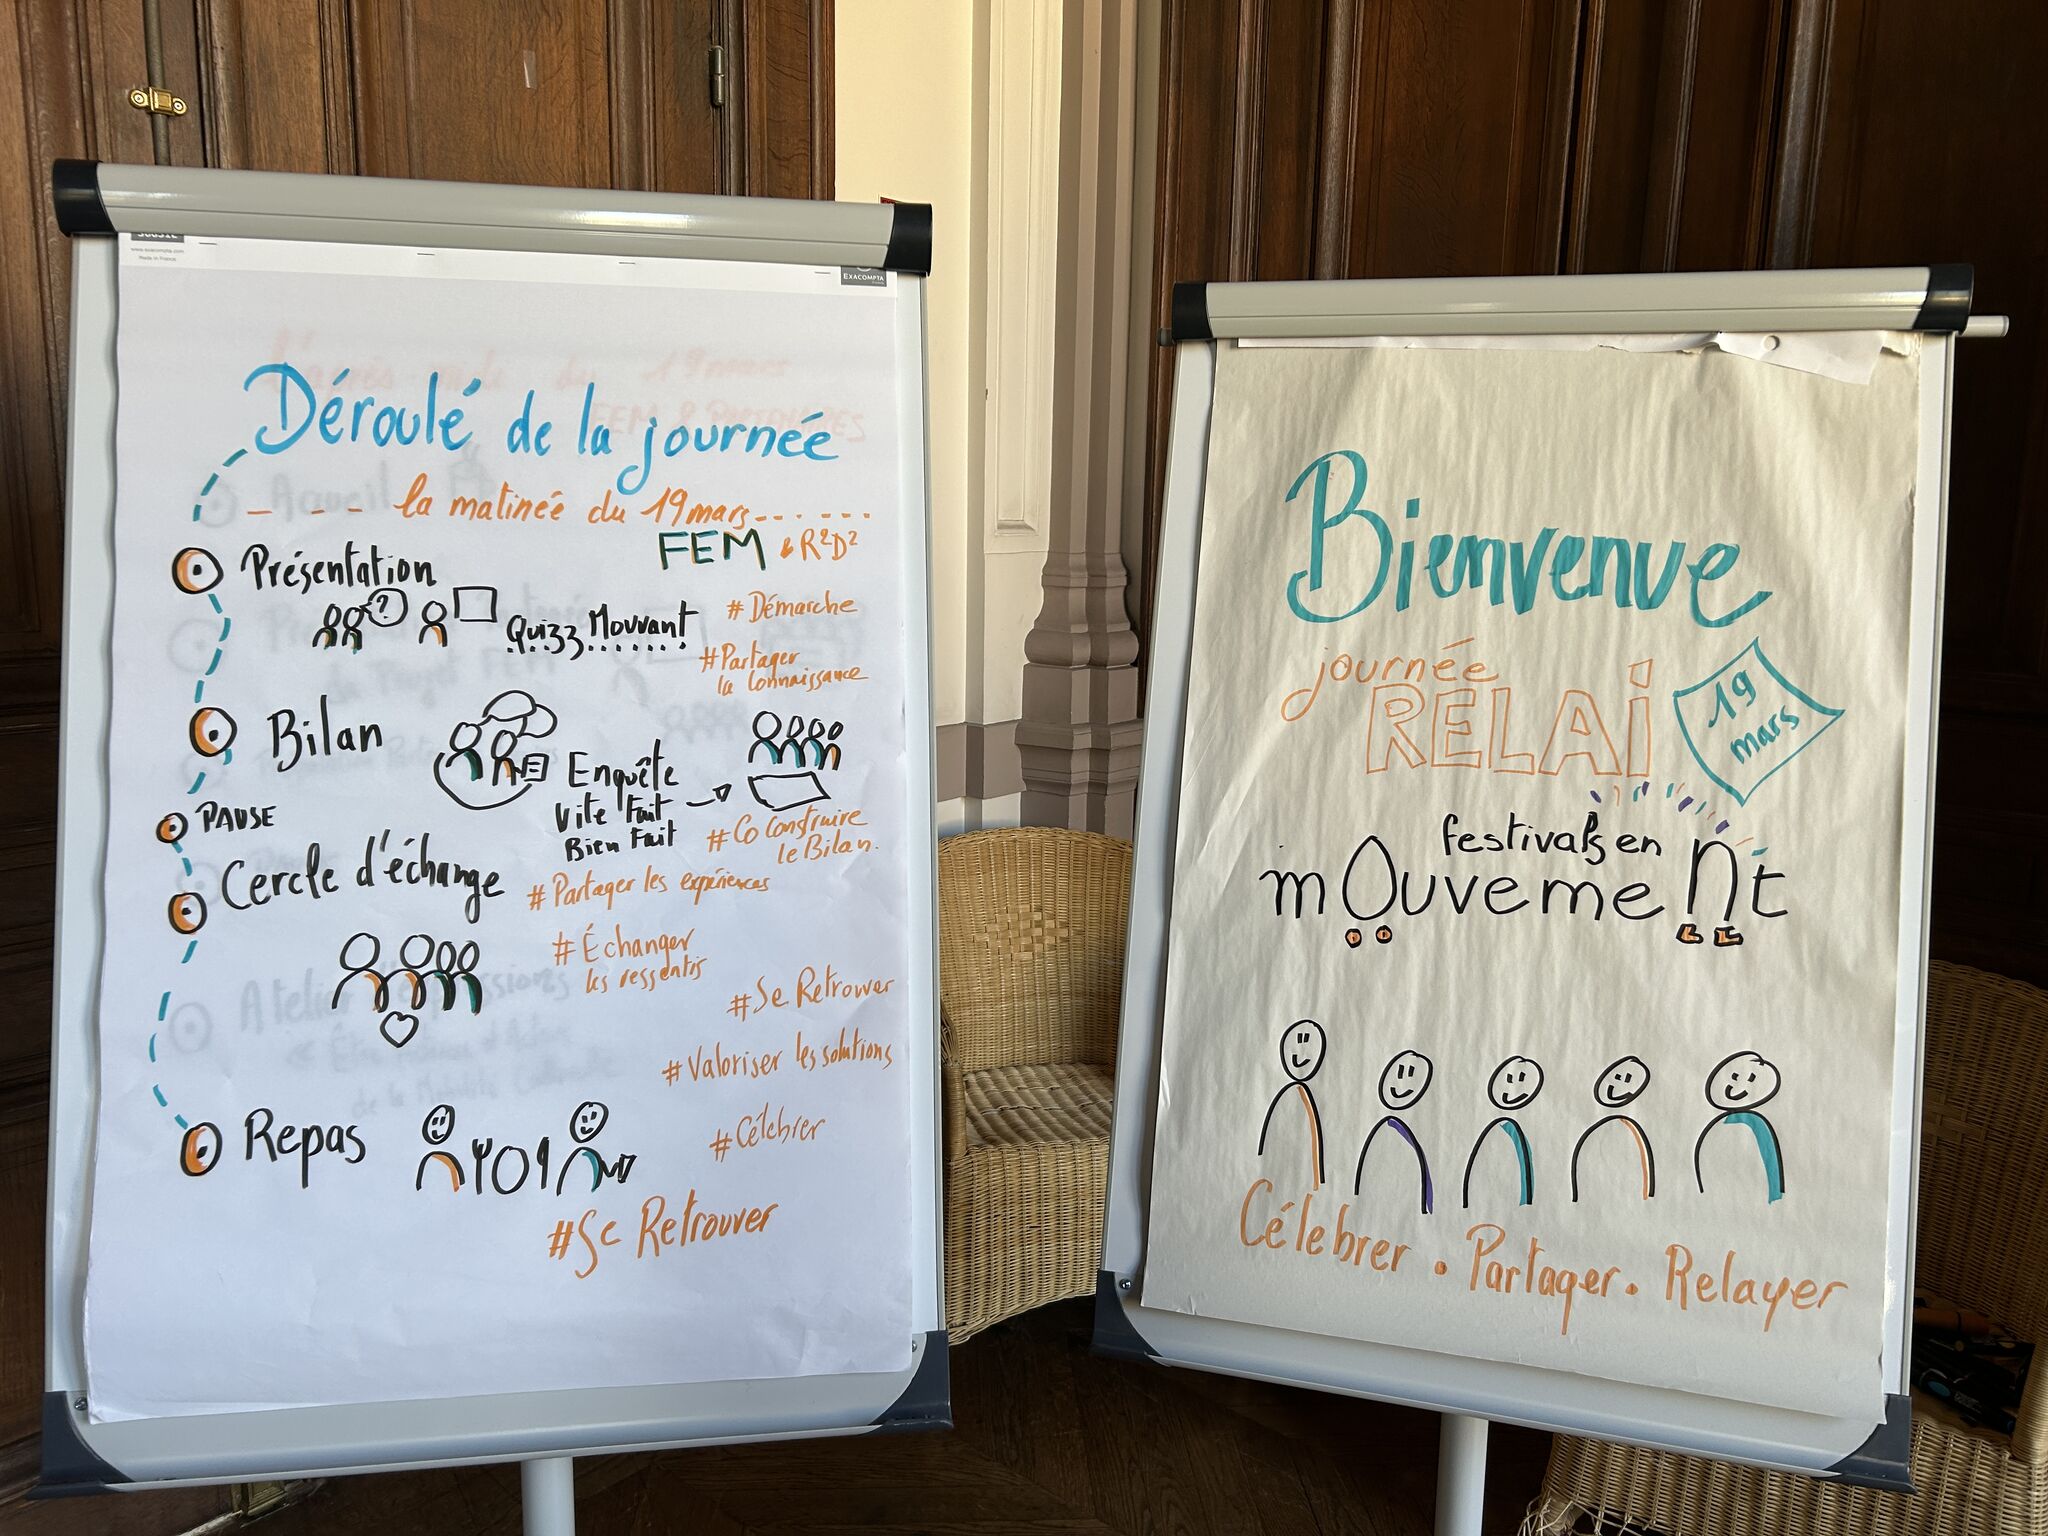 www.exacompta.com
Made in France
EXACOMPTA
Déroulé de la journée
la matinée du 19 mars
FEM & R²D²
Présentation
?
Quizz Mouvant
#Démarche
#Partager
la connaissance
Bilan
Enquête
Vite Fait
Bien Fait
#Co construire
le Bilan.
PAUSE
Cercle d'échange
#Partager les expériences
#Échanger
les ressentis
#Se Retrouver
#Valoriser les solutions
#Célebrer
Repas
#Se Retrouver
Bienvenue
journée
RELAi
19
mars
festivals en
mOuvement
Célebrer . Partager . Relayer